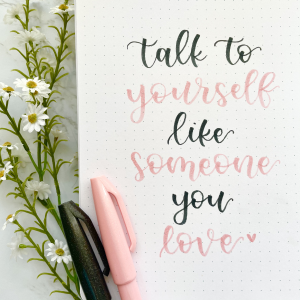 talk to
yourself
like
someone
you
love